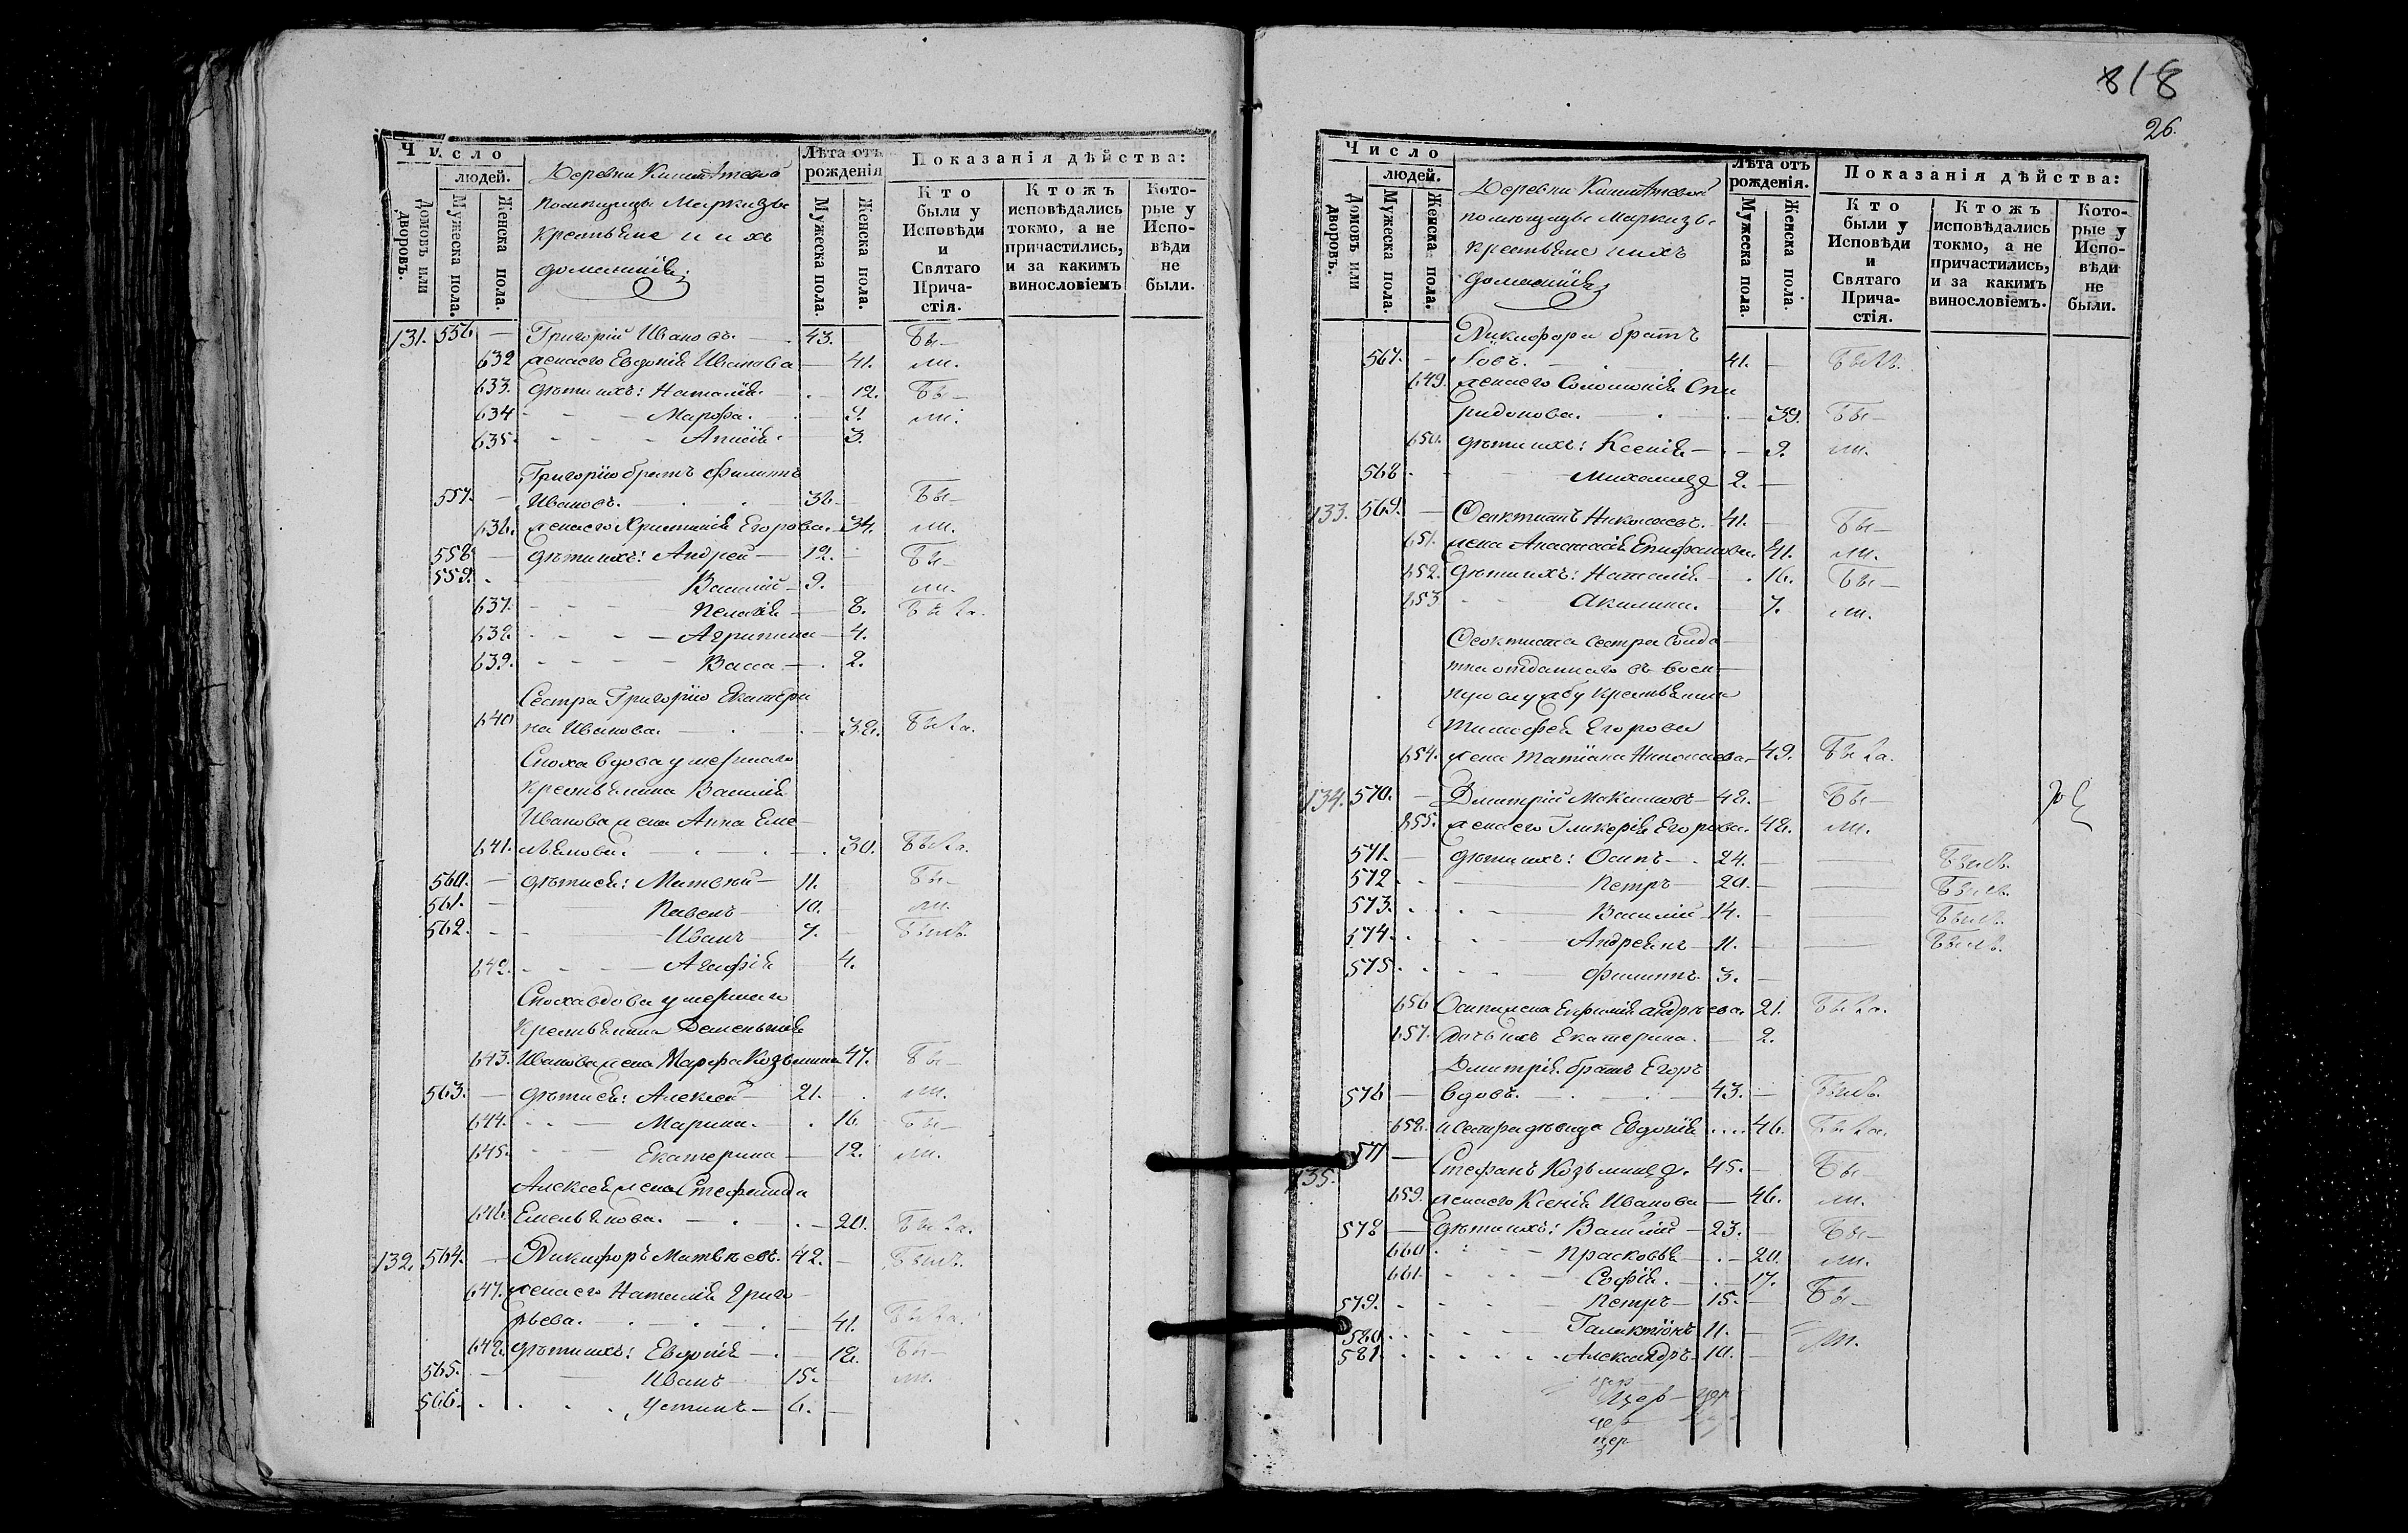 Число
людей.
Домовъ или дворовъ.
Мужеска пола.
Женска пола.
Деревни
помещицы Маркизы
крестьяне и ихъ
домашнія
Лѣта отъ рожденія
Мужеска пола.
Женска пола.
Показанія дѣйства:
Кто были у Исповѣди и Святаго Причастія.
Ктожъ исповѣдались токмо, а не причастились, и за какимъ винословіемъ
Которые у Исповѣди не были.
131. 556 — Григорій Ивановъ. — 43. Бы—
632 жена его Евдокія Иванова — 41. ли.
633. дѣти ихъ: Наталія — 12. Бы—
634 — Марфа. — 9. ли.
635. — 3.
Григорію братъ Филиппъ
557. — Ивановъ. — 36 — Бы—
636. жена его Христинія Егорова. — 34. ли.
558 — дѣти ихъ: Андрей — 12. — Бы—
559. — Василій — 9. ли.
637. — Пелагія — 8. Была.
638. — Агрипина — 4.
639. — Васса — 2.
Сестра Григорію Екатери
640 на Иванова. — 38. Была.
Сноха вдова умершаго
крестьянина Василія
Иванова жена Анна Еме—
641. льянова. — 30. Была.
560. — дѣти ея: Матвѣй — 11. Бы—
561. — Павелъ — 10. ли.
562. — Иванъ — 7. — Былъ.
642. — Агафія — 4.
Сноха вдова умершаго
крестьянина Дементія
643. Иванова жена Марфа Козьмина 47. Бы—
563. — дѣти ея: Алексей — 21. — ли.
644. — Марина. — 16 Бы—
645. — Екатерина — 12. ли.
Алексея жена Стефанида
646. Емельянова. — 20. Была.
132. 564. — Никифоръ Матвѣевъ. 42. — Былъ.
647. жена его Наталія Григо
рьева. — 41. Была.
648. дѣти ихъ: Евдокія — 18. Бы—
565. — Иванъ — 15. ли.
566. — Устинъ — 6. —
818
26.
Число
людей.
Домовъ или дворовъ.
Мужеска пола.
Женска пола.
Деревни
помѣщицы Маркизы
крестьяне и ихъ
домашнія
Лѣта отъ рожденія.
Мужеска пола.
Женска пола.
Показанія дѣйства:
Кто были у Исповѣди и Святаго Причастія.
Ктожъ исповѣдались токмо, а не причастились, и за какимъ винословіемъ.
Которые у Исповѣди не были.
Никифора братъ
567. — Іовъ. — 41. — Былъ.
649. жена его Соломонія Спи
ридонова. — 39. Бы—
650. дѣти ихъ: Ксенія — 9. ли.
568 — Михаилъ 2. —
133. 569. — Феоктистъ Николаевъ. 41. — Бы—
651. жена Анастасія Епифанова. 41. ли.
652. дѣти ихъ: Наталія — 16. Бы—
653 — Акилина. — 7. ли.
Феоктиста сестра солда—
тка отданнаго въ воен—
ную службу крестьянина
Тимофея Егорова
654. жена Татіана Николаева — 49. Была.
134. 570. — Дмитрій Максимовъ — 48. — Бы—
655. жена его Гликерія Егорова. 48. ли.
571. — дѣти ихъ: Осипъ — 24. — Былъ.
572 — Петръ — 20. — Былъ.
573. — Василій — 14. — Былъ.
574. — Андреянъ — 11. — Былъ.
575 — Филиппъ. 3. —
656 Осипа жена Евфимія Андрѣева. 21. Была.
657. дочь ихъ Екатерина. — 2.
Дмитрія братъ Егоръ
576 — вдовъ. — 43. — Былъ.
658. и сестра дѣвица Евдокія .... 46. Была.
135. 577 — Стефанъ Козьминъ. 45. — Бы—
659. жена его Ксенія Иванова — 46. ли.
578 — дѣти ихъ: Василій — 23. — Бы—
660. — Прасковья — 20. ли.
661. — Софія. — 17.
579. — Петръ — 15. — Бы—
580. — Галактіонъ 11. —
581. — Александръ 10. — ли.